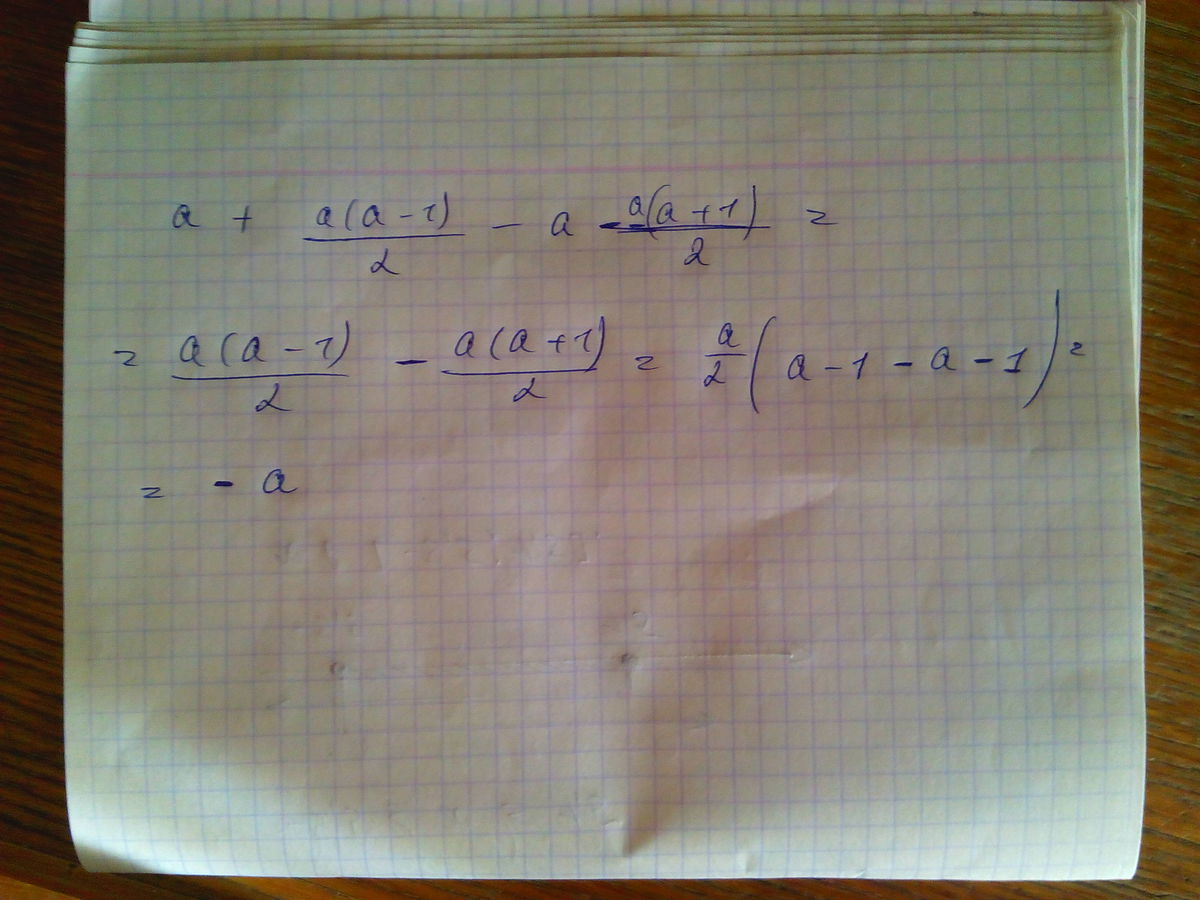 a + a(a-1)/2 - a - a(a+1)/2 =
= a(a-1)/2 - a(a+1)/2 = a/2 (a-1-a-1) =
= - a